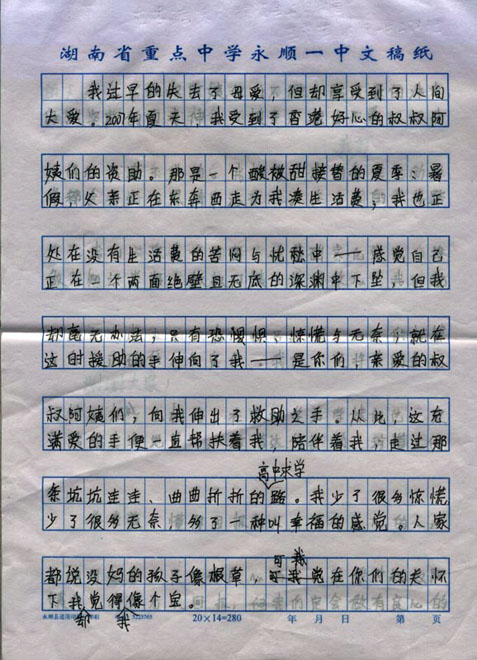 湖南省重点中学永顺一中文稿纸
我过早的失去了母爱，但却享受到了人间
大爱。2007年夏天，我受到了香港好心的叔叔阿
姨们的资助。那是一个酸极甜接替的夏季：暑
假，父亲正在东奔西走为我凑生活费，我也正
处在没有生活费的苦闷与忧愁中——感觉自己
正在一个两面绝壁且无底的深渊中下坠，但我
却毫无办法，只有恐惧、惊慌与无奈，就在
这时援助的手伸向了我——是你们，亲爱的叔
叔阿姨们，向我伸出了救助之手。从此，这充
满爱的手便一直帮扶着我、陪伴着我，走过那
高中求学
条坑坑洼洼、曲曲折折的路。我少了很多惊慌
少了很多无奈，多了一种叫幸福的感觉。人家
可我
都说没妈的孩子像根草，可我觉在你们的关怀
下我觉得像个宝。
却 我
20×14=280 年 月 日 第 页